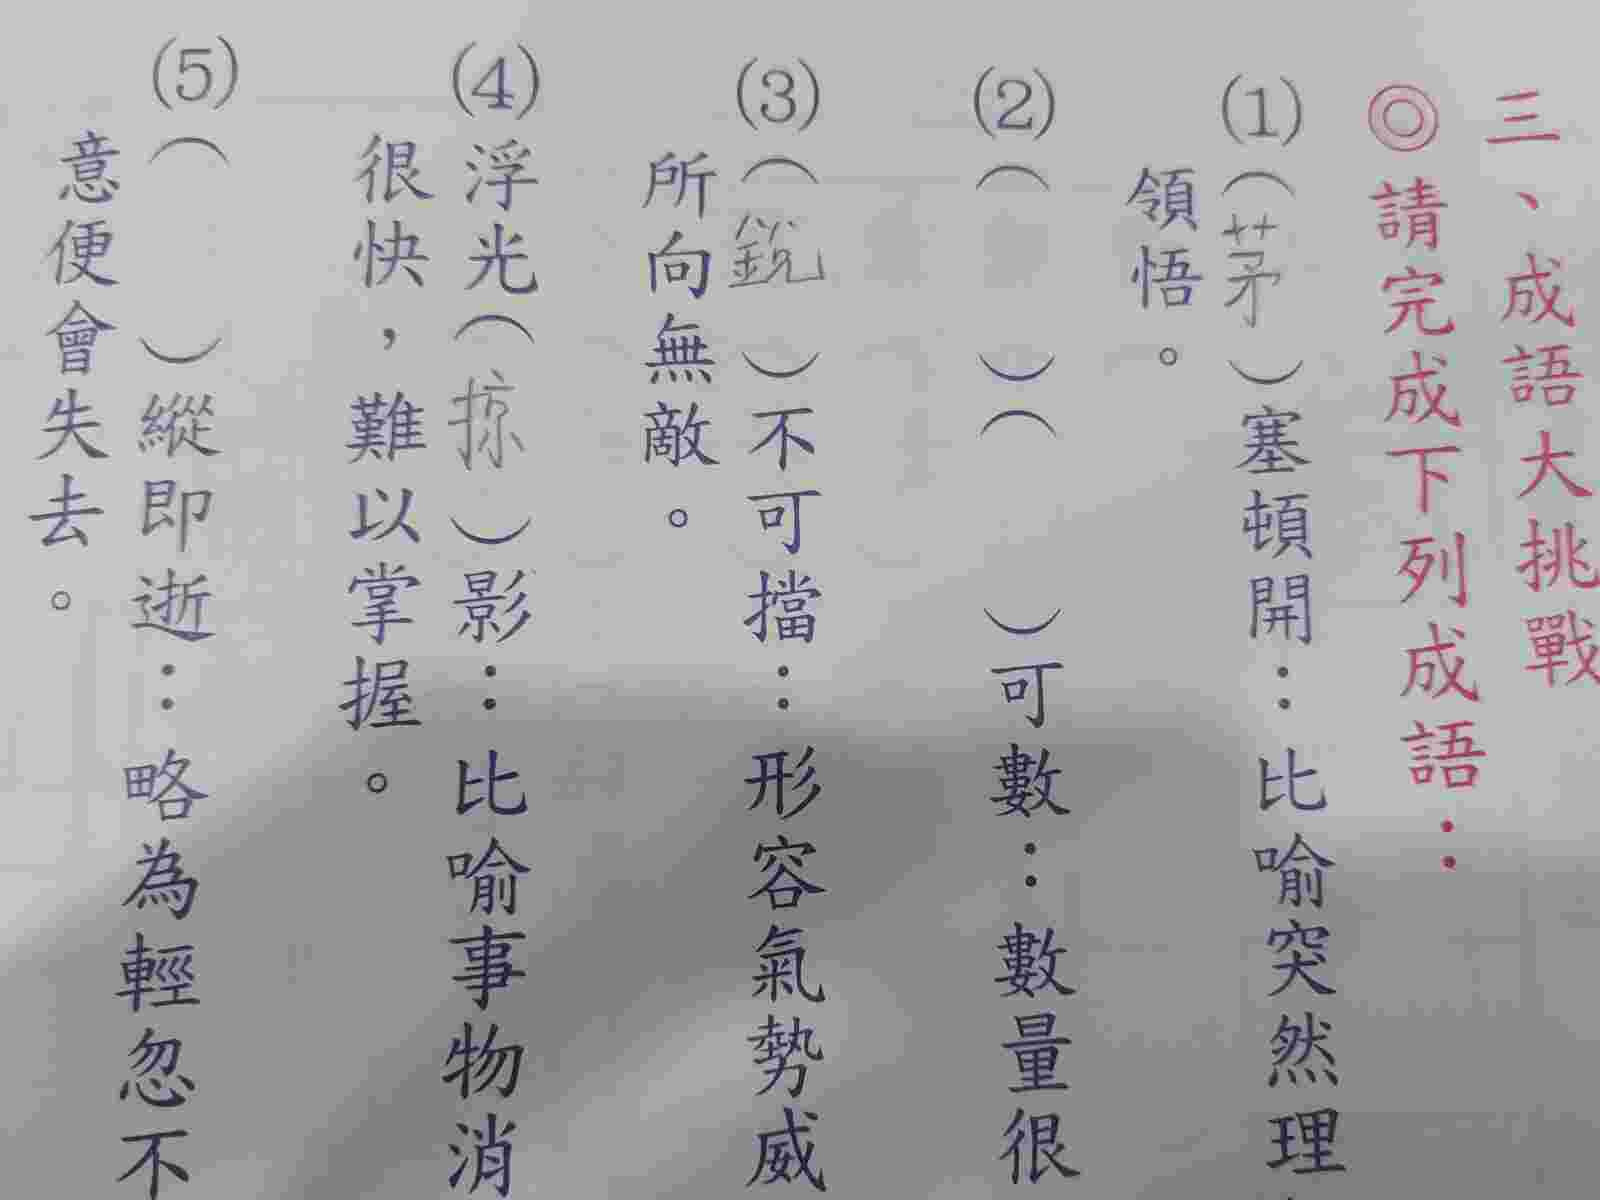 三、成語大挑戰
◎請完成下列成語：
(1)（茅）塞頓開：比喻突然理
領悟。
(2)（　）（　）可數：數量很
(3)（銳）不可擋：形容氣勢威
所向無敵。
(4)浮光（掠）影：比喻事物消
很快，難以掌握。
(5)（　）縱即逝：略為輕忽不
意便會失去。